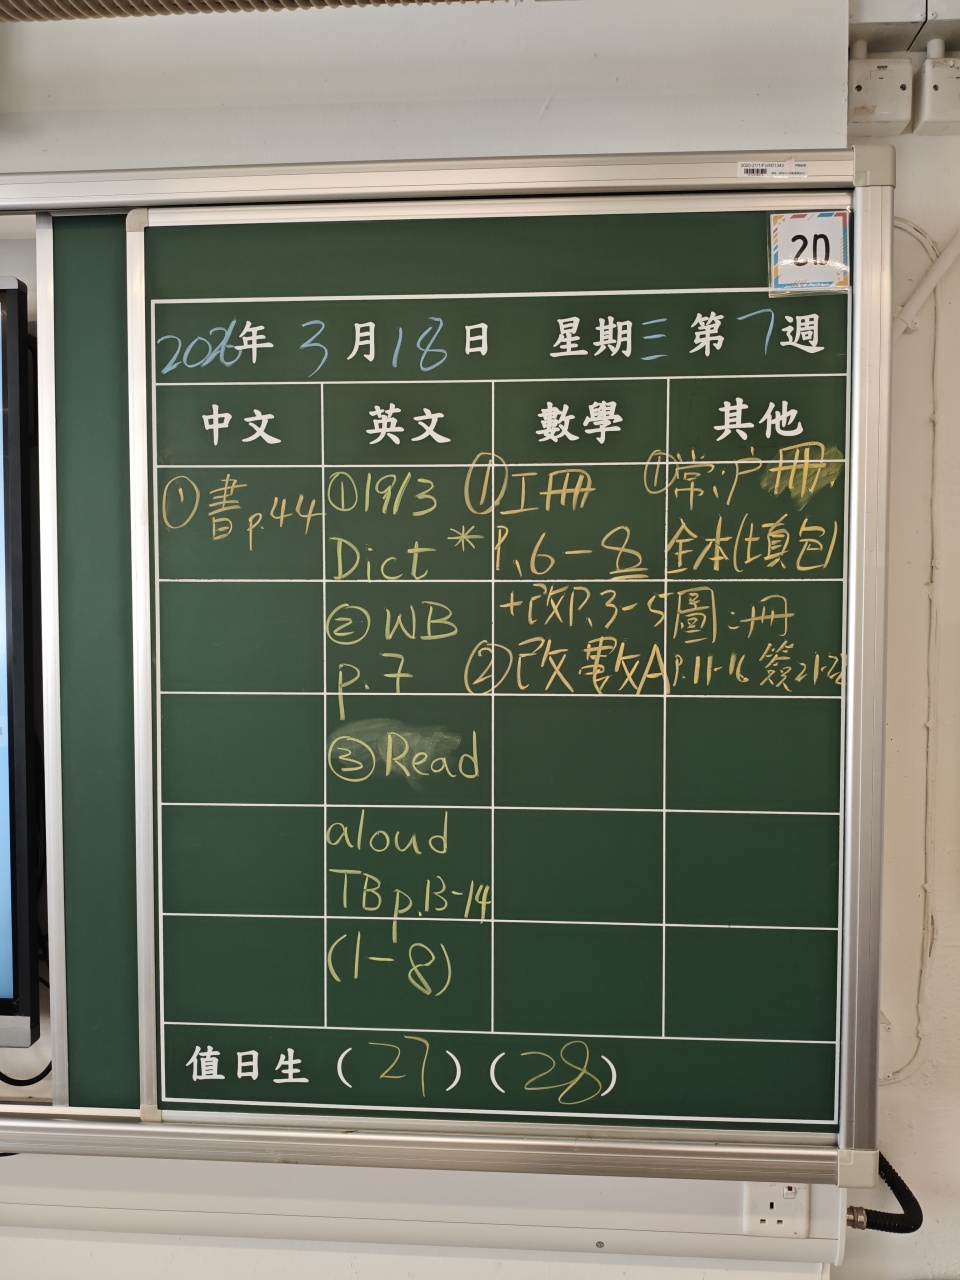 2D
2026年 3月18日 星期三 第7週
中文 英文 數學 其他
①書p.44
①19/3
Dict *
②WB
p.7
③Read
aloud
TB p.13-14
(1-8)
①工冊
P.6-8
+改P.3-5
②改數A
①常:戶冊
全本(填包)
圖:冊
P.11-16 簽21-22
值日生 (27) (28)